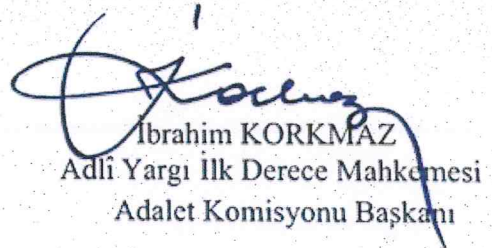 İbrahim KORKMAZ
Adlî Yargı İlk Derece Mahkemesi
Adalet Komisyonu Başkanı